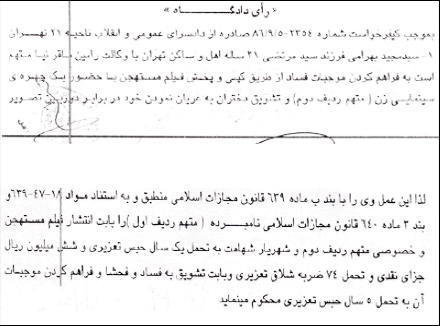 « رأی دادگــــــاه »
بموجب کیفرخواست شماره ۲۳۵۴-۸۶/۹/۵ صادره از دادسرای عمومی و انقلاب ناحیه ۲۱ تهــران
۱- سیدمجید بهرامی فرزند سید مرتضی ۲۱ ساله اهل و ساکن تهران با وکالت رامین باقر نیا متهم
است به فراهم کردن موجبات فساد از طریق کپی و پخش فیلم مستهجن با حضور یک چهره ی
سینمایی زن ( متهم ردیف دوم ) و تشویق دختران به عریان نمودن خود در برابر دوربین تصویر
لذا این عمل وی را با بند ب ماده ۶۳۹ قانون مجازات اسلامی منطبق و به استناد مـواد ۱۸-۴۷-۶۳۹و
بند ۳ ماده ۶۴۰ قانون مجازات اسلامی نامبــرده ( متهم ردیف اول )را بابت انتشار فیلم مستهجن
و خصوصی متهم ردیف دوم و شهریار شهامت به تحمل یک سال حبس تعزیری و شش میلیون ریال
جزای نقدی و تحمل ۷۴ ضربه شلاق تعزیری وبابت تشویق به فساد و فحشا و فراهم کردن موجبـات
آن به تحمل ۵ سال حبس تعزیری محکوم مینماید